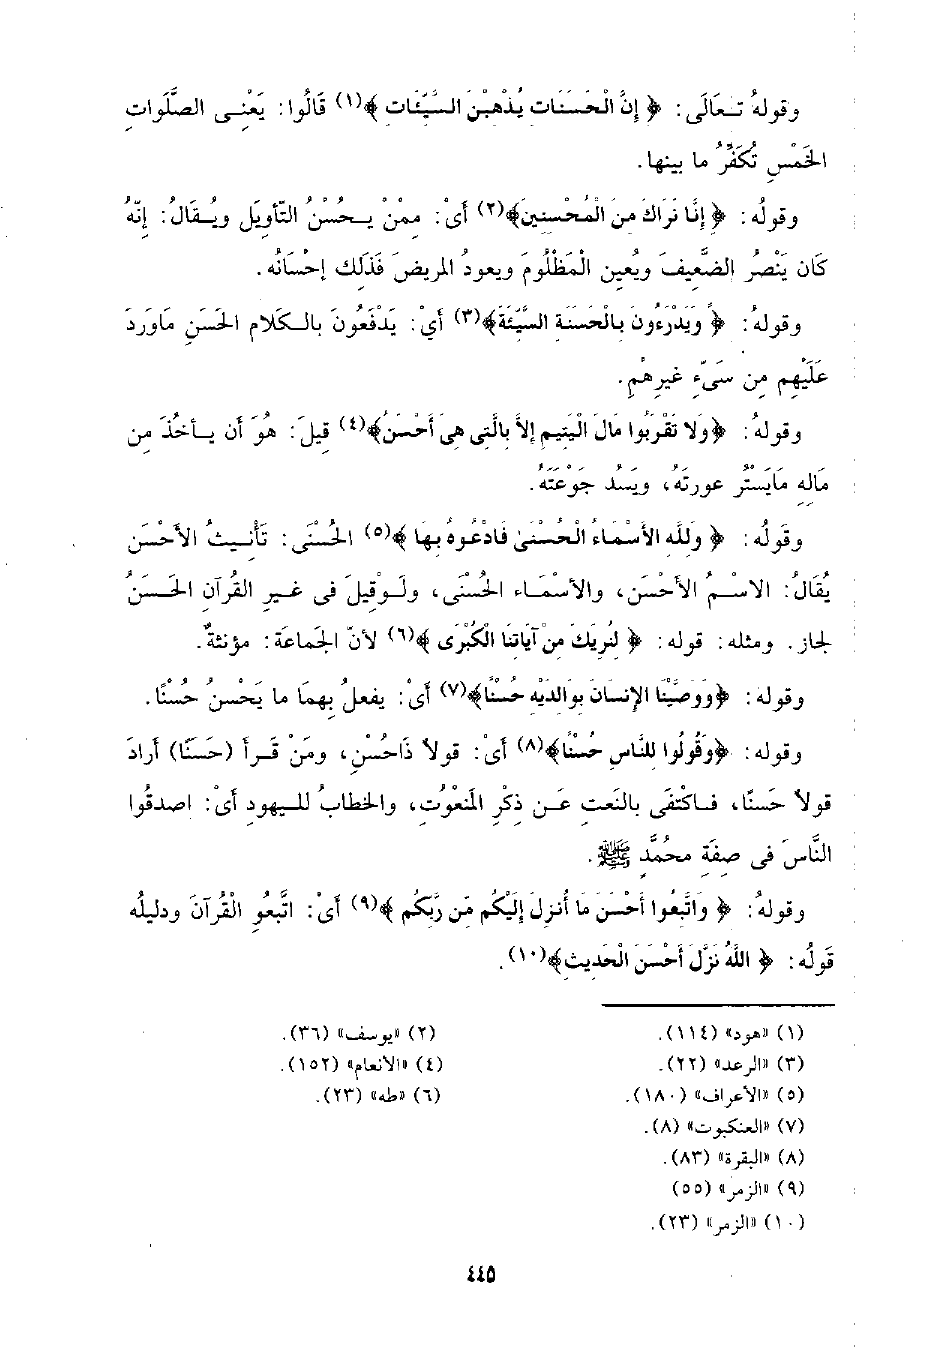 وقولهُ تـعَالَى: ﴿ إِنَّ الْحَسَنَاتِ يُذْهِبْنَ السَّيِّئَاتِ ﴾(١) قَالُوا: يَعْنـى الصَّلَوات
الخَمْسِ تُكَفِّرُ ما بينها.
وقولُه: ﴿ إِنَّا نَرَاكَ مِنَ الْمُحْسِنِينَ﴾(٢) أىْ: ممنْ يـحُسْنُ التّأويَل ويُـقَالُ: إنّهُ
كَان يَنْصُرُ الضَّعِيفَ ويُعِين الْمَظْلُومَ ويعودُ المريضَ فَذَلِك إحْسَانُه.
وقولهُ: ﴿ وَيَدْرَءُونَ بِالْحَسَنَةِ السَّيِّئَةَ﴾(٣) أىْ: يَدْفَعُونَ بالـكلَامِ الحَسَنِ مَاوَردَ
عَلَيْهِم مِن سَىّءِ غيرِهْمِ.
وقولهُ: ﴿وَلَا تَقْرَبُوا مَالَ الْيَتِيمِ إِلَّا بِالَّتِى هِىَ أَحْسَنُ﴾(٤) قيلَ: هُوَ أن يـأخُذَ مِن
مَالِهِ مَايَسْتُر عورتَهُ، ويَسُد جَوْعَتَهُ.
وقَولُه: ﴿ وَلِلَّهِ الأَسْمَاءُ الْحُسْنَىٰ فَادْعُوهُ بِهَا ﴾(٥) الحُسْنَى: تَأنـيثُ الأحْسَن
يُقَالُ: الاسْـمُ الأَحْسَن، والأسْمَـاء الحُسْنَى، ولَـوْقِيلَ فى غـيرِ القُرآنِ الحَـسَنُ
لجاز. ومثله: قوله: ﴿ لِنُرِيَكَ مِنْ آيَاتِنَا الْكُبْرَى ﴾(٦) لأنّ الجَماعَة: مؤنثةٌ.
وقوله: ﴿وَوَصَّيْنَا الإِنسَانَ بِوَالِدَيْهِ حُسْنًا﴾(٧) أىْ: يفعلُ بِهمَا ما يَحْسنُ حُسْنًا.
وقوله: ﴿وَقُولُوا لِلنَّاسِ حُسْنًا﴾(٨) أىْ: قولاً ذَاحُسْنٍ، ومَنْ قَـرأ (حَسَنًا) أرادَ
قولاً حَسنًا، فـاكْتفَى بالنَعتِ عَـن ذِكْرِ المَنعُوتِ، والخطابُ لليهودِ أىْ: اصدقُوا
النَّاسَ فى صِفَةِ محمُدٍَّ ﷺ.
وقولهُ: ﴿ وَاتَّبِعُوا أَحْسَنَ مَا أُنزِلَ إِلَيْكُم مِّن رَّبِّكُم ﴾(٩) أىْ: اتَّبِعُو الْقُرآنَ ودليلُه
قَولُه: ﴿ اللَّهُ نَزَّلَ أَحْسَنَ الْحَدِيثِ﴾(١٠).
(١) «هود» (١١٤). (٢) «يوسف» (٣٦).
(٣) «الرعد» (٢٢). (٤) «الأنعام» (١٥٢).
(٥) «الأعراف» (١٨٠). (٦) «طه» (٢٣).
(٧) «العنكبوت» (٨).
(٨) «البقرة» (٨٣).
(٩) «الزمر» (٥٥)
(١٠) «الزمر» (٢٣).
٤٤٥